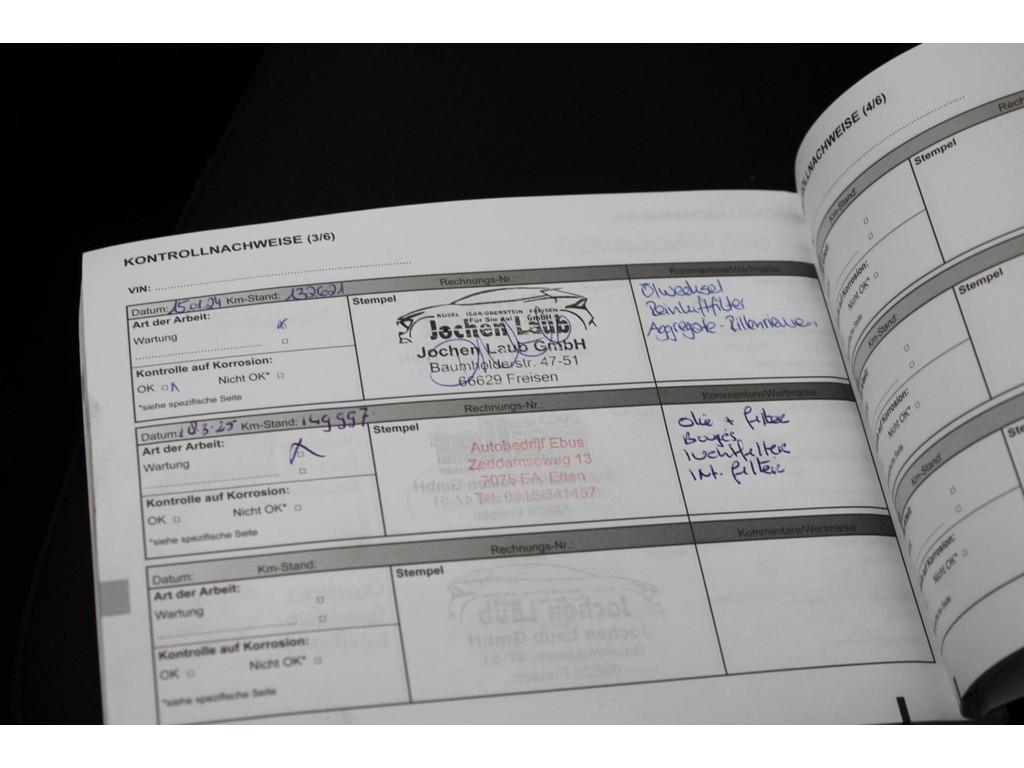 KONTROLLNACHWEISE (3/6)
VIN:
Datum: 15.01.24 Km-Stand: 132621 Rechnungs-Nr.: Kommentare/Wertmarke
Art der Arbeit:
Wartung
Kontrolle auf Korrosion:
OK Nicht OK*
*siehe spezifische Seite
Stempel
KUSEL IDAR-OBERSTEIN FREISEN
Für Sie da! GmbH
Jochen Laub
Jochen Laub GmbH
Baumholderstr. 47-51
66629 Freisen
Ölwechsel
Aggregate-
Datum: Km-Stand: 149997 Rechnungs-Nr.: Kommentare/Wertmarke
Art der Arbeit:
Wartung
Kontrolle auf Korrosion:
OK Nicht OK*
*siehe spezifische Seite
Stempel
Autobedrijf Ebus
Zeddamseweg 13
7075 EA Etten
Tel. 0315/341457
Olie + filter
Luchtfilter
Int. filter
Datum: Km-Stand: Rechnungs-Nr.: Kommentare/Wertmarke
Art der Arbeit:
Wartung
Kontrolle auf Korrosion:
OK Nicht OK*
*siehe spezifische Seite
Stempel
(4/6)
Km-Stand:
Stempel
auf Korrosion:
Nicht OK*
Km-Stand:
Stempel
Nicht OK*
Km-Stand:
Nicht OK*